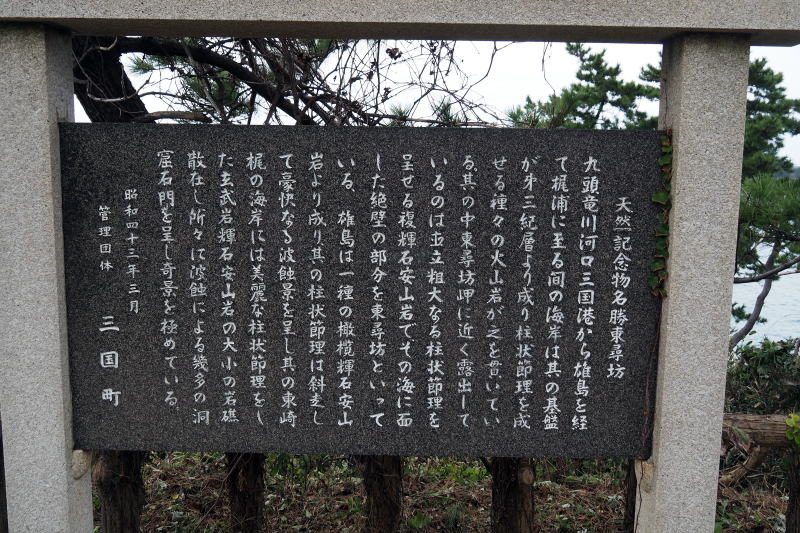 天然記念物名勝東尋坊
九頭竜川河口三国港から雄島を経
て梶浦に至る間の海岸は其の基盤
が第三紀層より成り柱状節理を成
せる種々の火山岩が之を貫いてい
る。其の中東尋坊岬に近く露出して
いるのは玉立粗大なる柱状節理を
呈せる複輝石安山岩でその海に面
した絶壁の部分を東尋坊といって
いる。雄島は一種の橄欖輝石安山
岩より成り其の柱状節理は斜走し
て豪快なる波蝕景を呈し其の東崎
梶の海岸には美麗な柱状節理をし
た玄武岩輝石安山岩の大小の岩礁
散在し所々に波蝕による幾多の洞
窟石門を呈し奇景を極めている。
昭和四十三年三月
管理団体 三国町